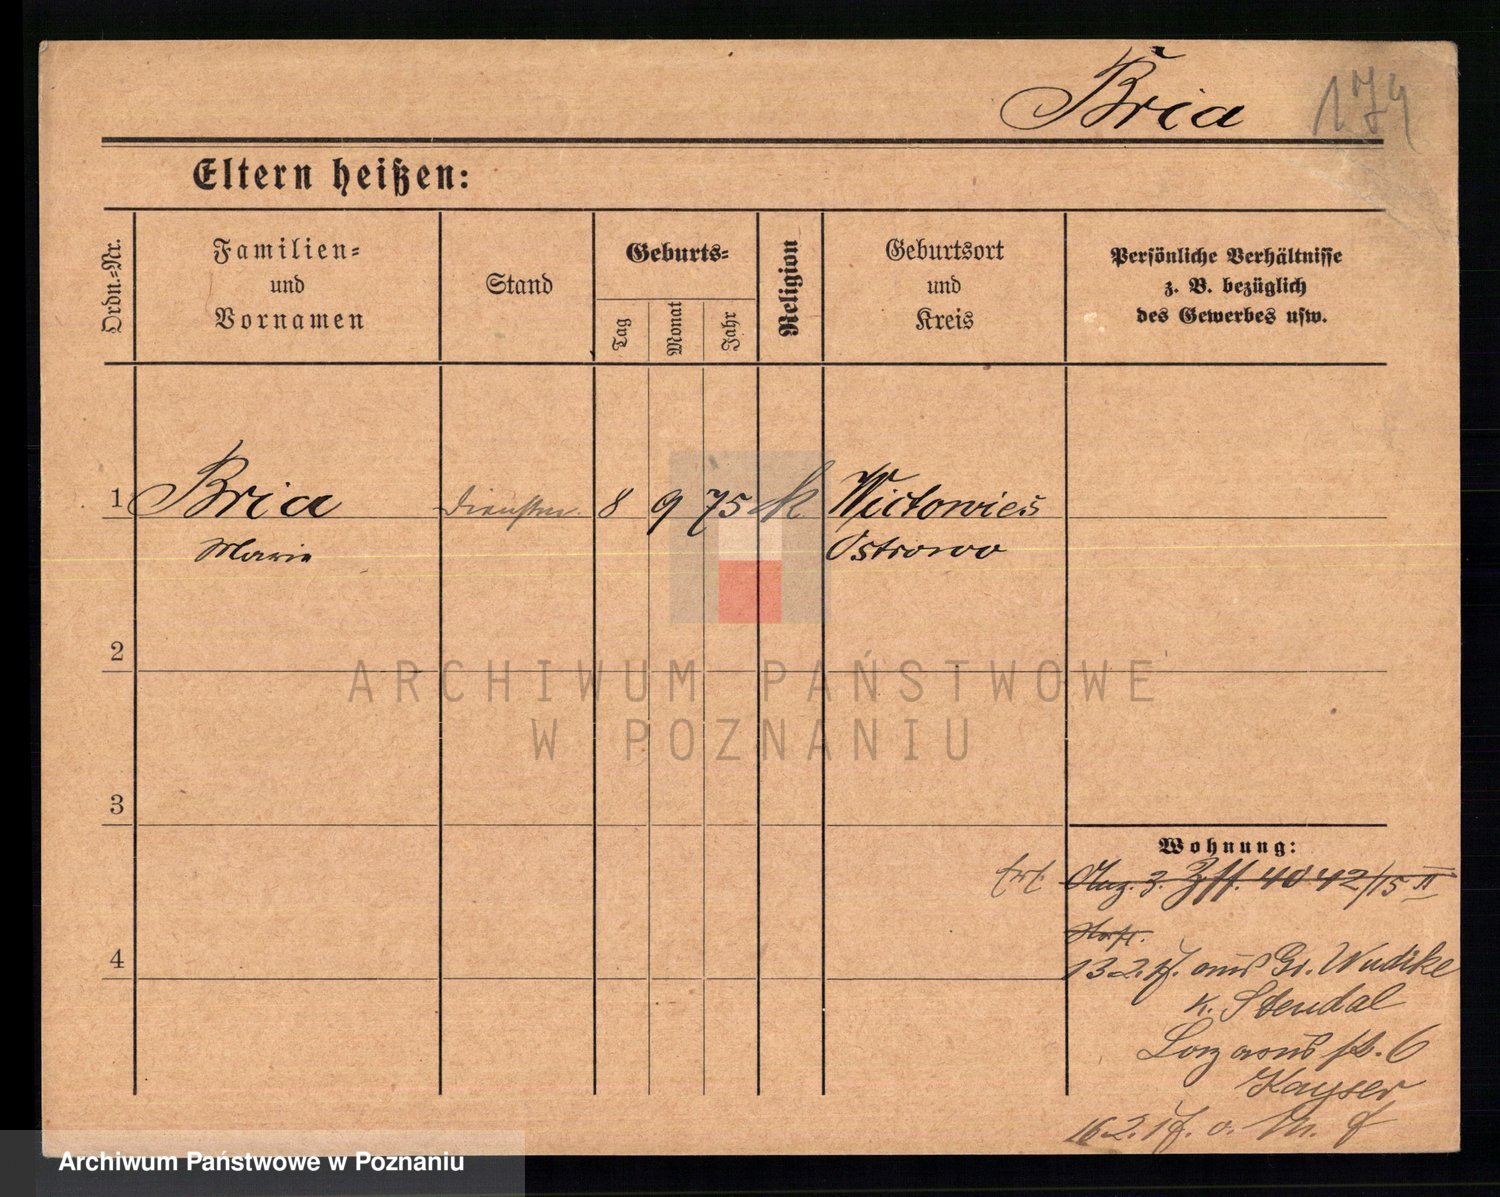 Bria 174
Eltern heißen:
Ordn.=Nr.
Familien=
und
Vornamen
Stand
Geburts=
Tag
Monat
Jahr
Religion
Geburtsort
und
Kreis
Persönliche Verhältnisse
z. B. bezüglich
des Gewerbes usw.
1 Bria 8 9 75 k.
Marie Ostrowo
2
3
4
Wohnung:
Anz. 3. 4042/15 II
13.2.17. aus Gr. Wudike
k. Stendal
6
Kayser
16.2.17.
ARCHIWUM PAŃSTWOWE
W POZNANIU
Archiwum Państwowe w Poznaniu